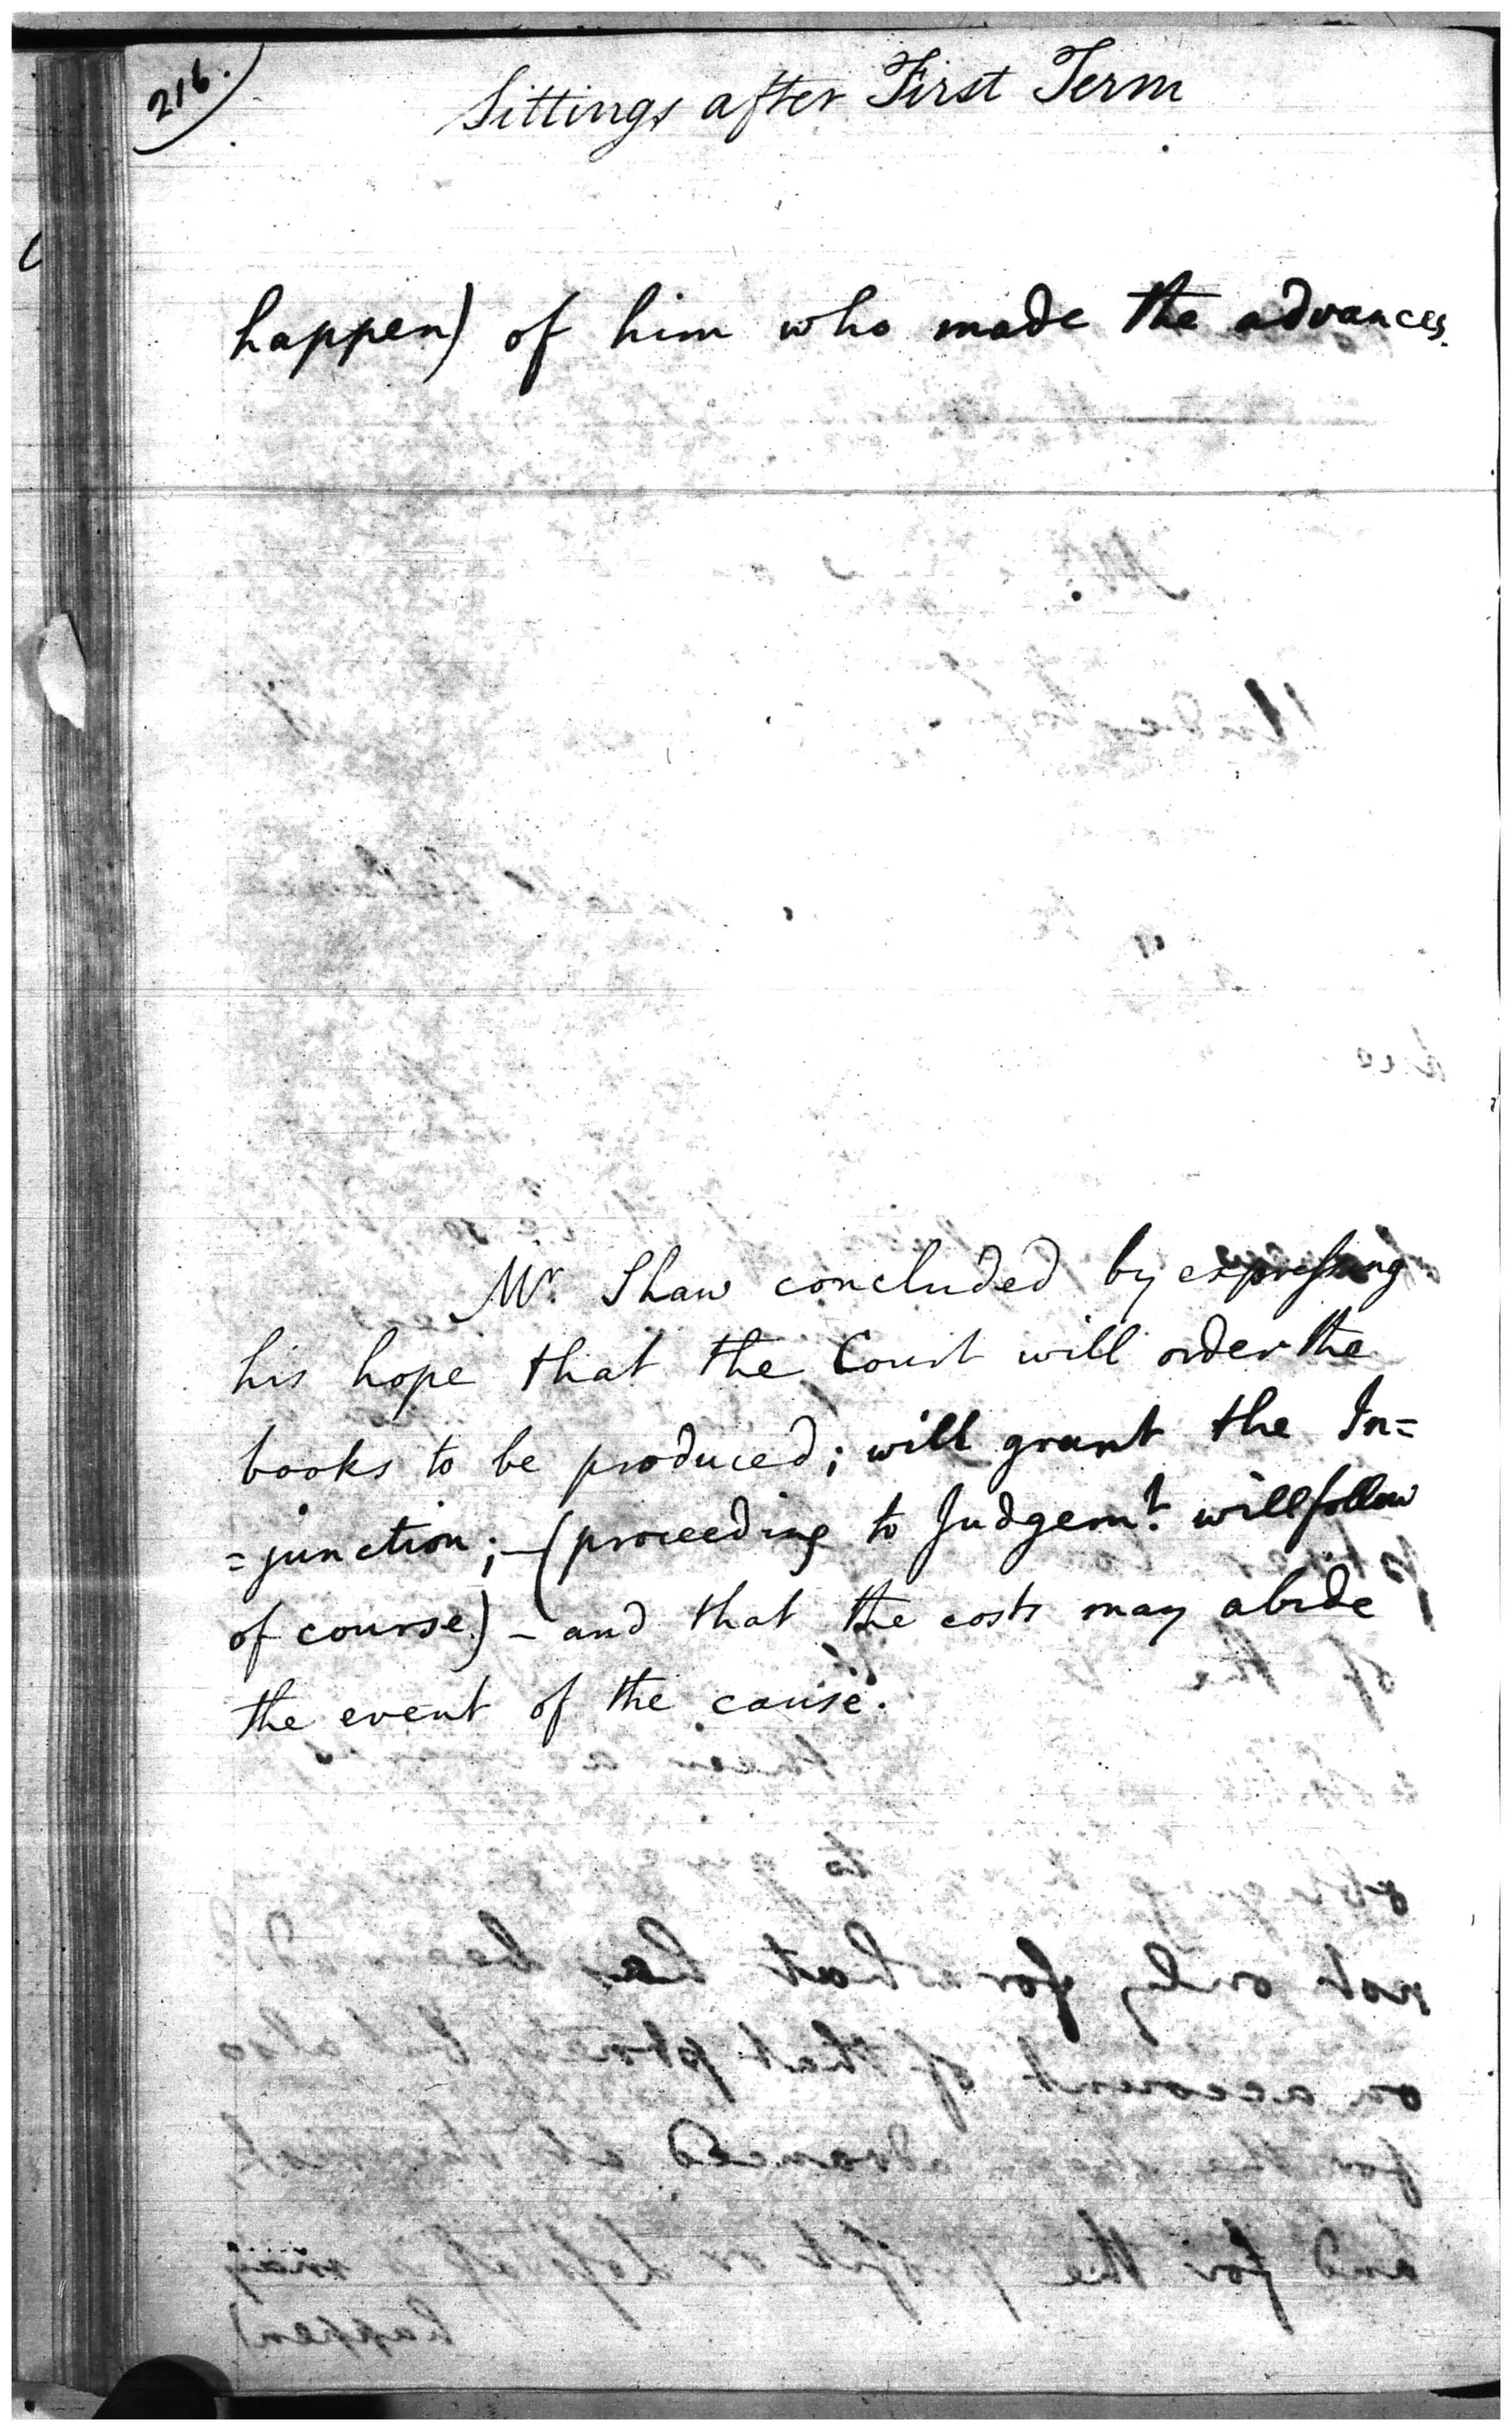 216.)
Sittings after First Term
happen) of him who made the advances.
Mr. Shaw concluded by expressing
his hope that the Court will order the
books to be produced; will grant the In=
=junction;—(proceeding to Judgemt. will follow
of course)—and that the costs may abide
the event of the cause.